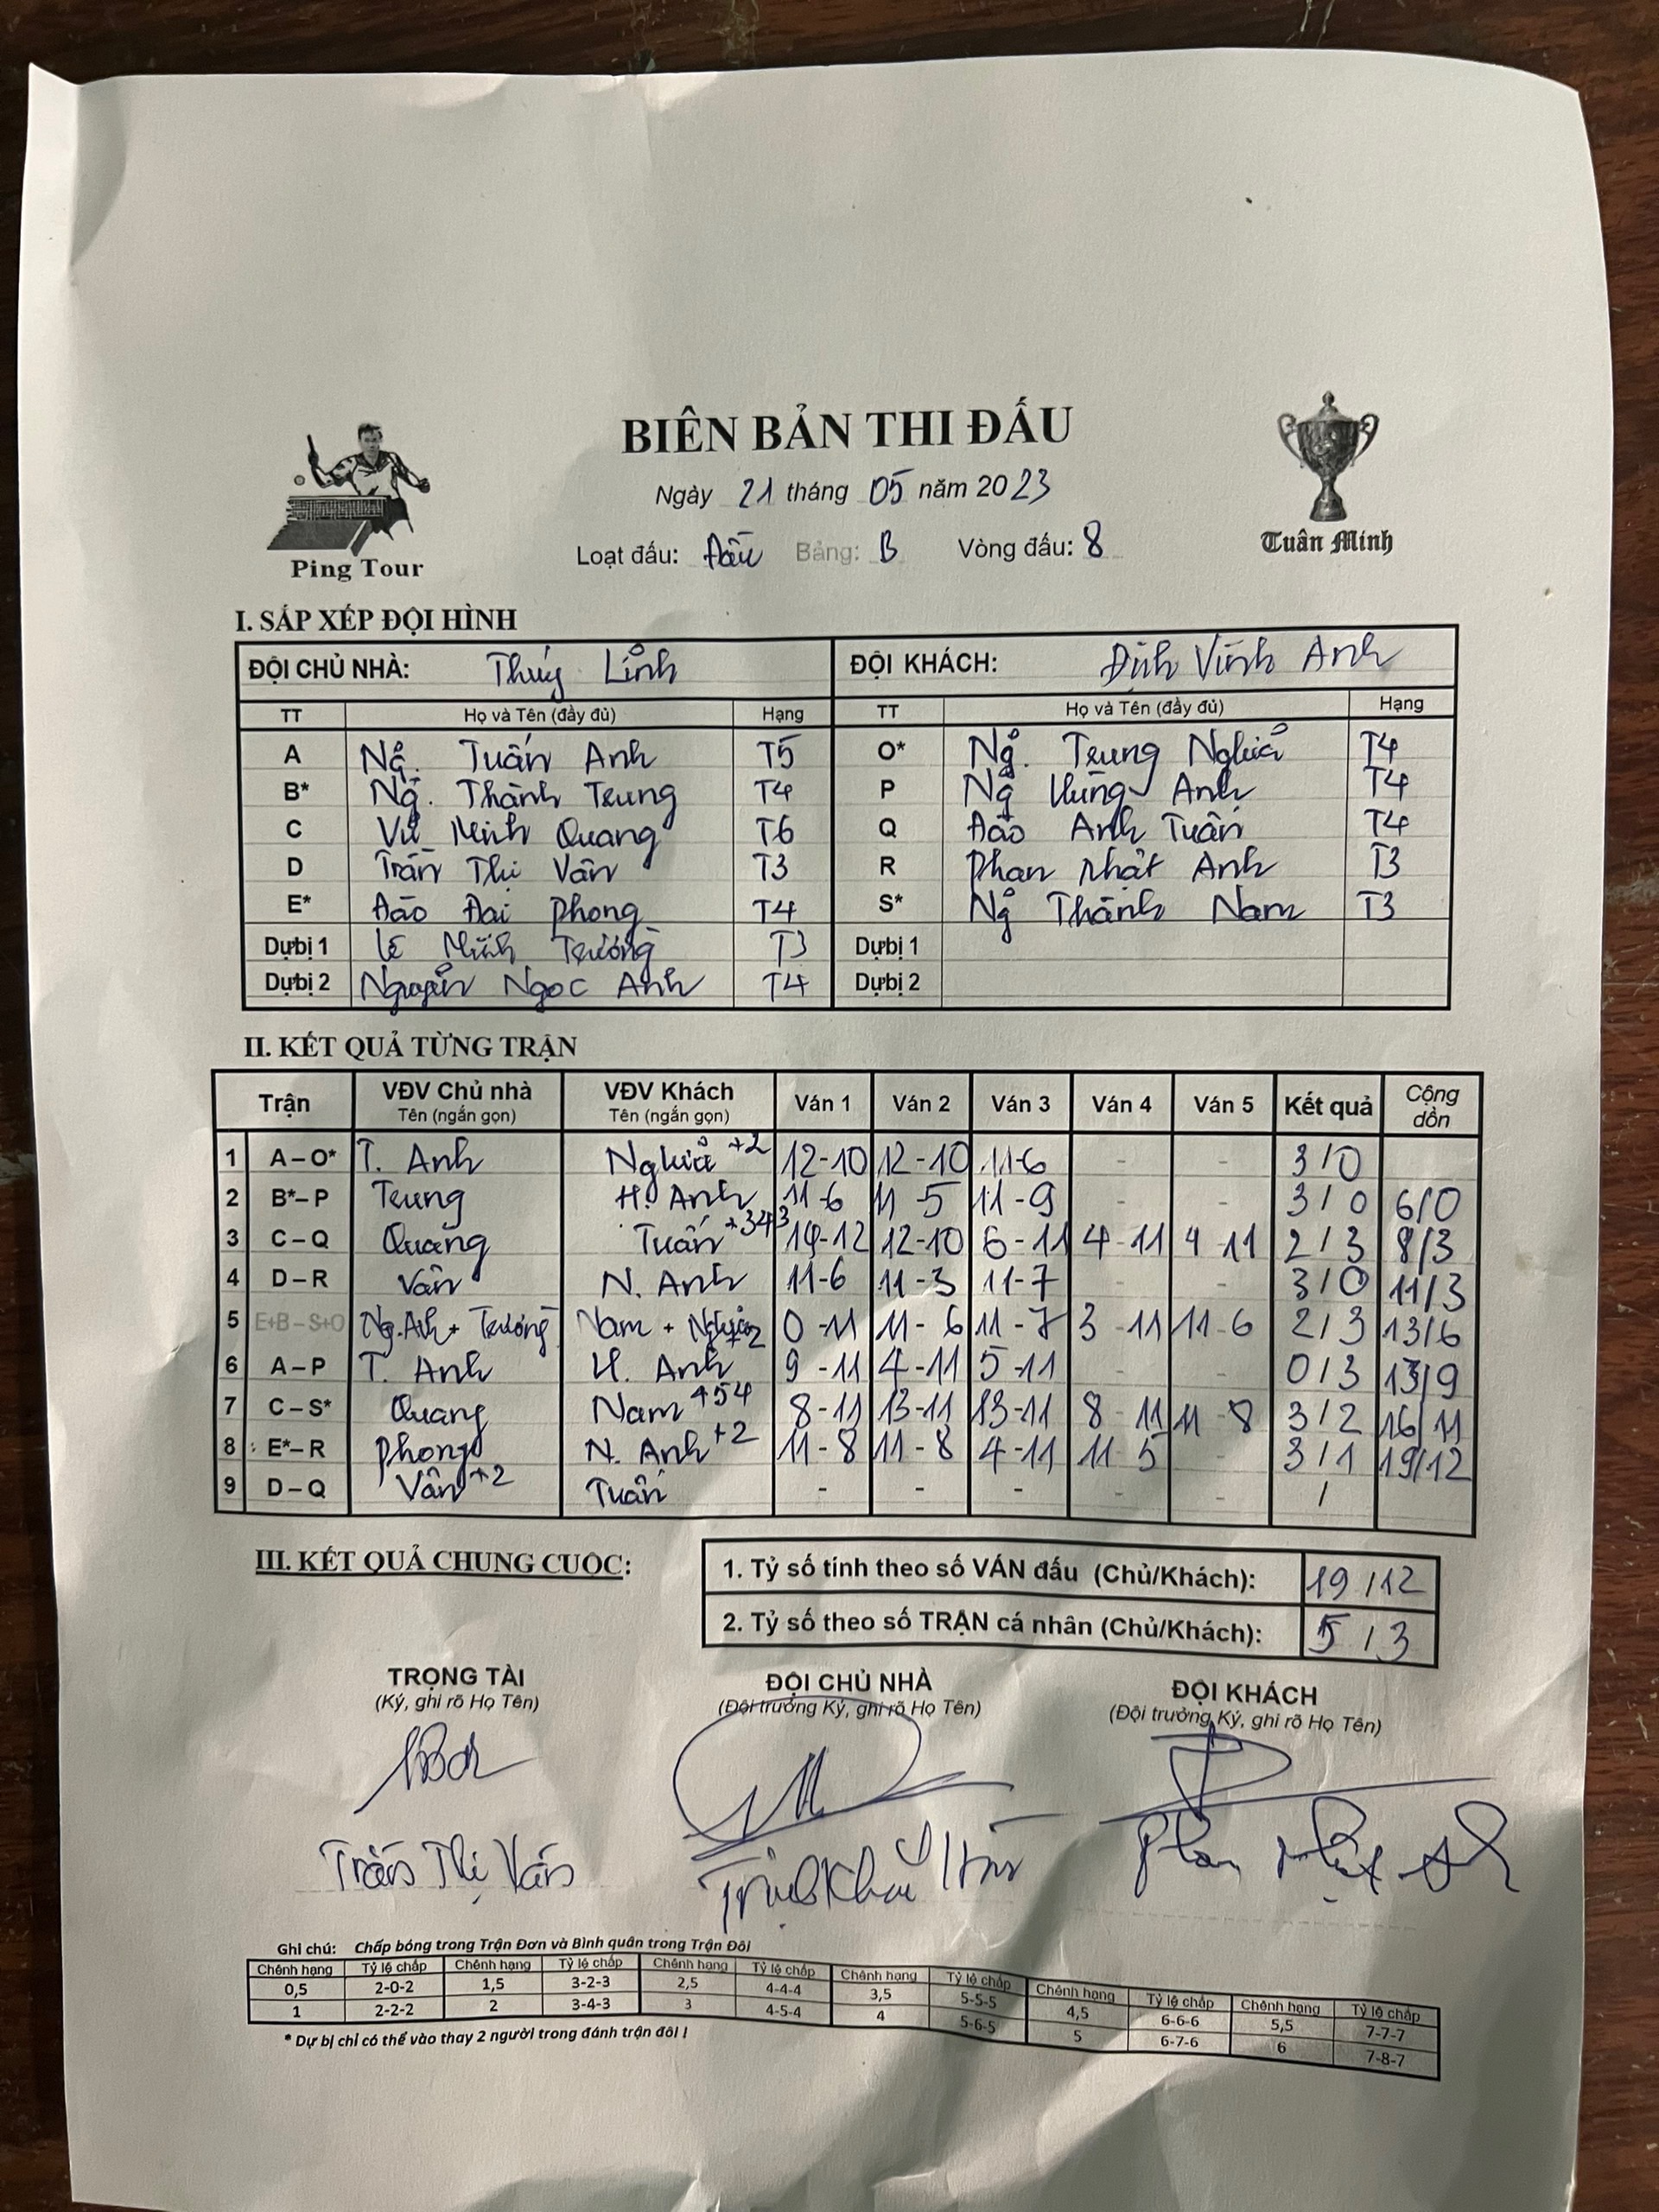 BIÊN BẢN THI ĐẤU
Ngày 21 tháng 05 năm 2023
Loạt đấu: Bảng: B Vòng đấu: 8
Ping Tour
Tuân Minh
I. SẮP XẾP ĐỘI HÌNH
ĐỘI CHỦ NHÀ: Thúy Linh ĐỘI KHÁCH: Đinh Vinh Anh
TT Họ và Tên (đầy đủ) Hạng TT Họ và Tên (đầy đủ) Hạng
A Ng. Tuấn Anh T5 O* Ng. Trung Nghĩa T4
B* Ng. Thành Trung T4 P Ng Hùng Anh T4
C Vũ Minh Quang T6 Q Đào Anh Tuấn T4
D Trần Thị Vân T3 R Phan Nhật Anh T3
E* Đào Đại Phong T4 S* Ng Thành Nam T3
Dự bị 1 Lê Minh Trường T3 Dự bị 1
Dự bị 2 Nguyễn Ngọc Anh T4 Dự bị 2
II. KẾT QUẢ TỪNG TRẬN
Trận VĐV Chủ nhà VĐV Khách Ván 1 Ván 2 Ván 3 Ván 4 Ván 5 Kết quả Cộng dồn
Tên (ngắn gọn) Tên (ngắn gọn)
1 A – O* T. Anh Nghĩa +2 12-10 12-10 11-6 - - 3/0
2 B* – P Trung H. Anh 11-6 11-5 11-9 - - 3/0 6/0
3 C – Q Quang Tuấn +343 14-12 12-10 6-11 4-11 9-11 2/3 8/3
4 D – R Vân N. Anh 11-6 11-3 11-7 - - 3/0 11/3
5 E+B – S+O Ng.Anh + Trường Nam + Nghĩa +2 0-11 11-6 11-7 3-11 11-6 2/3 13/6
6 A – P T. Anh H. Anh 9-11 4-11 5-11 - - 0/3 13/9
7 C – S* Quang Nam +454 8-11 13-11 13-11 8-11 11-8 3/2 16/11
8 E* – R Phong N. Anh +2 11-8 11-8 4-11 11-5 - 3/1 19/12
9 D – Q Vân +2 Tuấn - - - - - /
III. KẾT QUẢ CHUNG CUỘC:
1. Tỷ số tính theo số VÁN đấu (Chủ/Khách): 19/12
2. Tỷ số theo số TRẬN cá nhân (Chủ/Khách): 5/3
TRỌNG TÀI ĐỘI CHỦ NHÀ ĐỘI KHÁCH
(Ký, ghi rõ Họ Tên) (Đội trưởng Ký, ghi rõ Họ Tên) (Đội trưởng Ký, ghi rõ Họ Tên)
Trần Thị Vân Phan Nhật Anh
Ghi chú: Chấp bóng trong Trận Đơn và Bình quân trong Trận Đôi
Chênh hạng Tỷ lệ chấp Chênh hạng Tỷ lệ chấp Chênh hạng Tỷ lệ chấp Chênh hạng Tỷ lệ chấp Chênh hạng Tỷ lệ chấp Chênh hạng Tỷ lệ chấp
0,5 2-0-2 1,5 3-2-3 2,5 4-4-4 3,5 5-5-5 4,5 6-6-6 5,5 7-7-7
1 2-2-2 2 3-4-3 3 4-5-4 4 5-6-5 5 6-7-6 6 7-8-7
* Dự bị chỉ có thể vào thay 2 người trong đánh trận đôi !